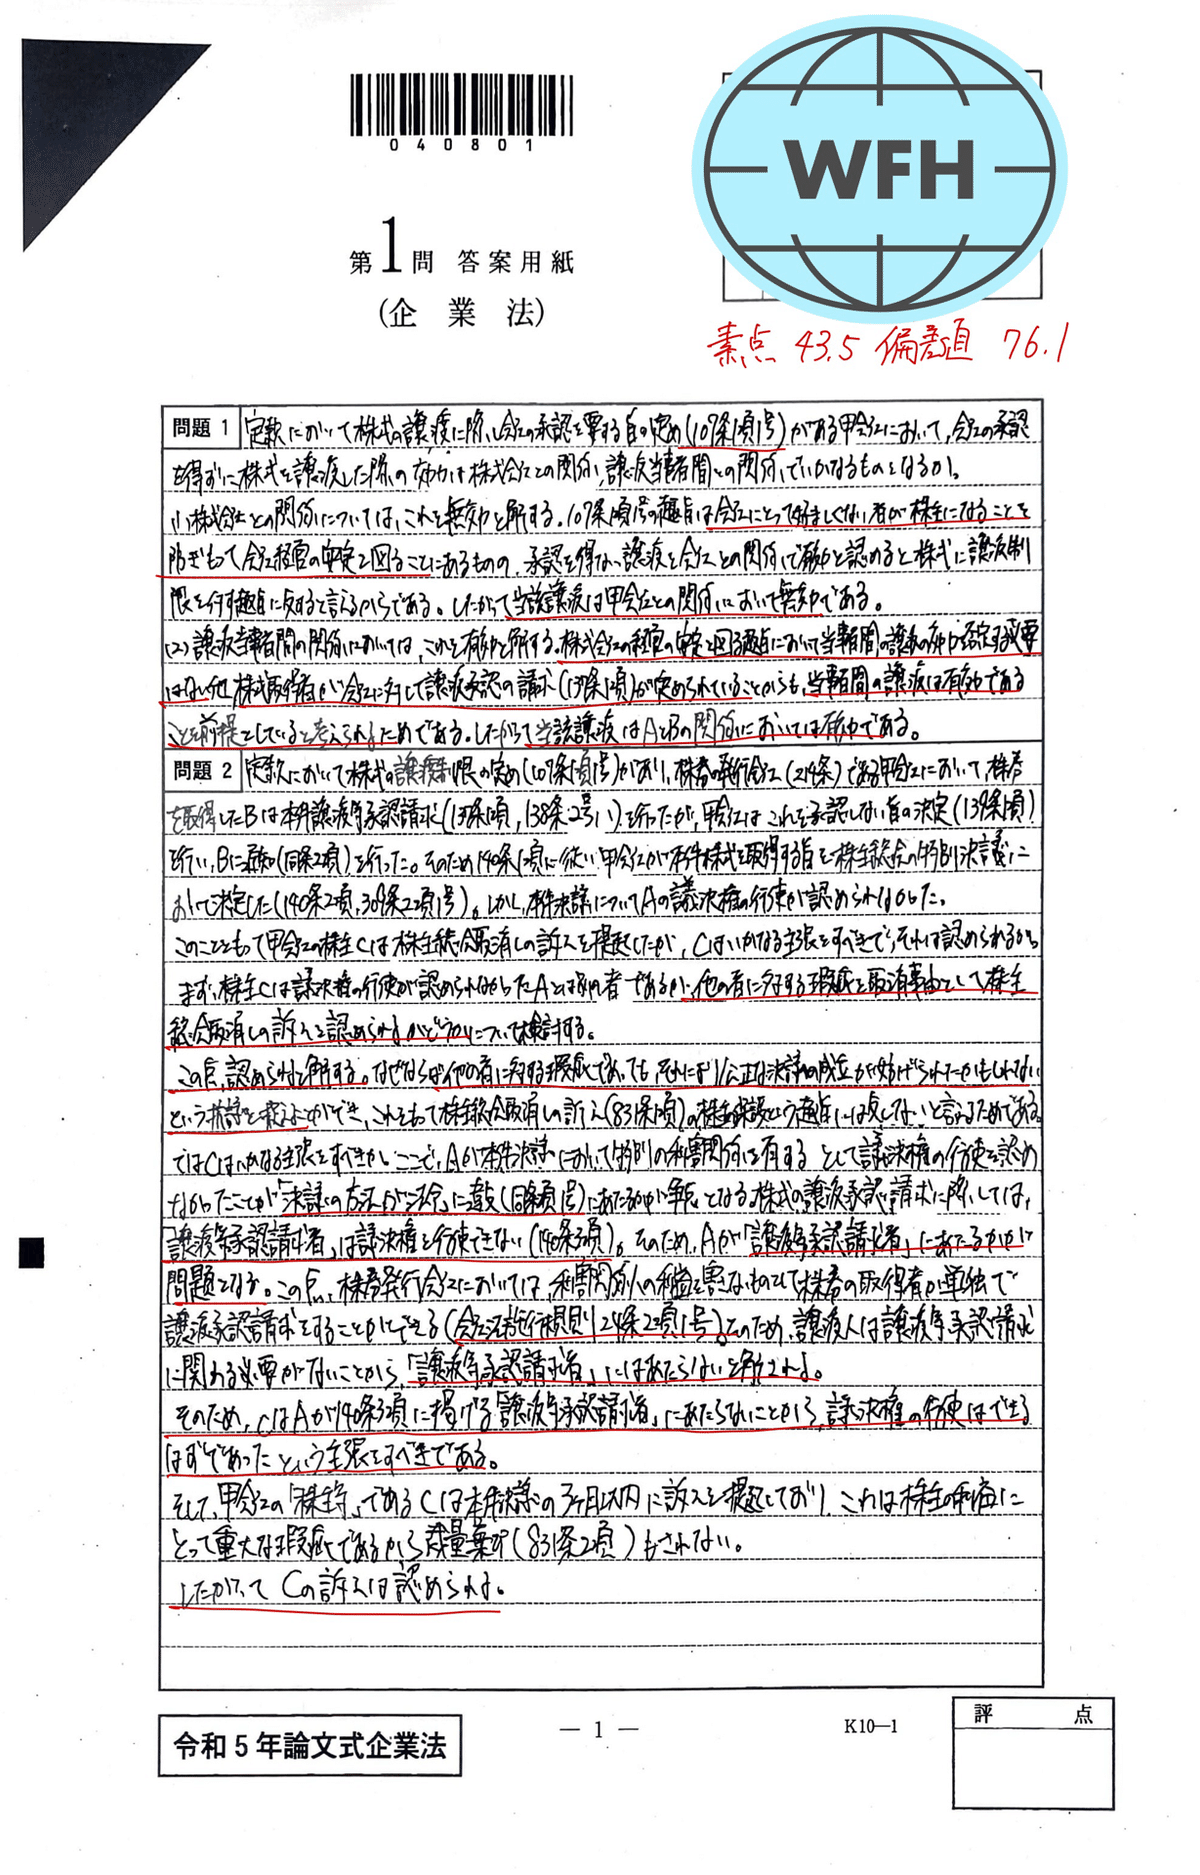 040801
WFH
第1問 答案用紙
(企業法)
素点 43.5 偏差値 76.1
問題 1 定款において株式の譲渡に際し会社の承認を要する旨の定め(107条1項1号)がある甲会社において、会社の承認
を得ずに株式を譲渡した際の効力は株式会社との関係、譲渡当事者間との関係でいかなるものとなるか。
(1)株式会社との関係については、これを無効と解する。107条1項1号の趣旨は会社にとって好ましくない者が株主になることを
防ぎもって会社経営の安定を図ることにあるものの、承認を得ない譲渡を会社との関係で有効と認めると株式に譲渡制
限を付す趣旨に反すると言えるからである。したがって当該譲渡は甲会社との関係において無効である。
(2)譲渡当事者間の関係においては、これを有効と解する。株式会社の経営の安定を図る趣旨において当事者間の譲渡の効力を否定する必要
はない他、株式取得者が会社に対して譲渡承認の請求(137条1項)が定められていることからも、当事者間の譲渡は有効である
ことを前提としていると考えられるためである。したがって当該譲渡はAとBの関係においては有効である。
問題 2 定款において株式の譲渡制限の定め(107条1項1号)があり、株券発行会社(214条)である甲会社において、株券
を取得したBは本件譲渡等承認請求(137条1項,138条2号い)を行ったが、甲会社はこれを承認しない旨の決定(139条1項)
を行い、Bに通知(同条2項)を行った。そのため140条1項に従い甲会社が本件株式を取得する旨を株主総会の特別決議に
おいて決定した(140条2項,309条2項1号)。しかし、本件決議についてAの議決権の行使が認められなかった。
このことをもって甲会社の株主Cは株主総会取消しの訴えを提起したが、Cはいかなる主張をすべきで、それは認められるか。
まず、株主Cは議決権の行使が認められなかったAとは別の者であるが、他の者に対する瑕疵を取消事由として株主
総会取消しの訴えを認められるかどうかについて検討する。
この点、認められると解する。なぜならば他の者に対する瑕疵であっても、それにより公正な決議の成立が妨げられたかもしれない
という抗議を唱えることができ、これをもって株主総会取消しの訴え(831条1項)の株主保護という趣旨には反しないと言えるためである。
ではCはいかなる主張をすべきか。ここで、Aが本件決議において特別の利害関係を有するとして議決権の行使を認め
なかったことが「決議の方法が法令」に違反(同条1項1号)にあたるかが争点となる。株式の譲渡承認請求に際しては、
「譲渡等承認請求者」は議決権を行使できない(140条3項)。そのため、Aが「譲渡等承認請求者」にあたるかが
問題となる。この点、株券発行会社においては、利害関係人の利益を害さないものとして株券の取得者が単独で
譲渡承認請求をすることができる(会社法施行規則24条2項1号)。そのため、譲渡人は譲渡等承認請求
に関わる必要がないことから、「譲渡等承認請求者」にはあたらないと解される。
そのため、CはAが140条3項に掲げる「譲渡等承認請求者」にあたらないことから、議決権の行使はできる
はずであったという主張をすべきである。
そして、甲会社の「株主等」であるCは本件決議の3ヶ月以内に訴えを提起しており、これは株主の利益に
とって重大な瑕疵であるから裁量棄却(831条2項)もされない。
したがって Cの訴えは認められる。
令和5年論文式企業法
— 1 —
K10—1
評 点